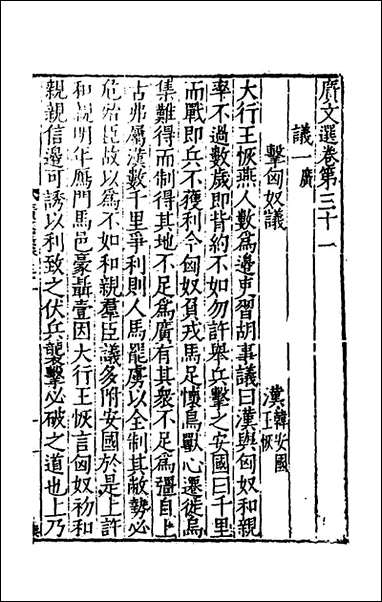 廣文選卷第三十一
議一廣
擊匈奴議
漢韓安國
王恢
大行王恢燕人數為邊吏習胡事議曰漢與匈奴和親
率不過數歲即背約不如勿許舉兵擊之安國曰千里
而戰即兵不獲利今匈奴負戎馬足懷鳥獸心遷徙鳥
集難得而制得其地不足為廣有其眾不足為彊自上
古弗屬漢數千里爭利則人馬罷虜以全制其敝勢必
危殆臣故以為不如和親羣臣議多附安國於是上許
和親明年鴈門馬邑豪聶壹因大行王恢言匈奴初和
親親信邊可誘以利致之伏兵襲擊必破之道也上乃